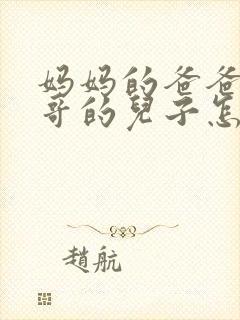 妈妈的爸爸
哥的兒子怎
趙航